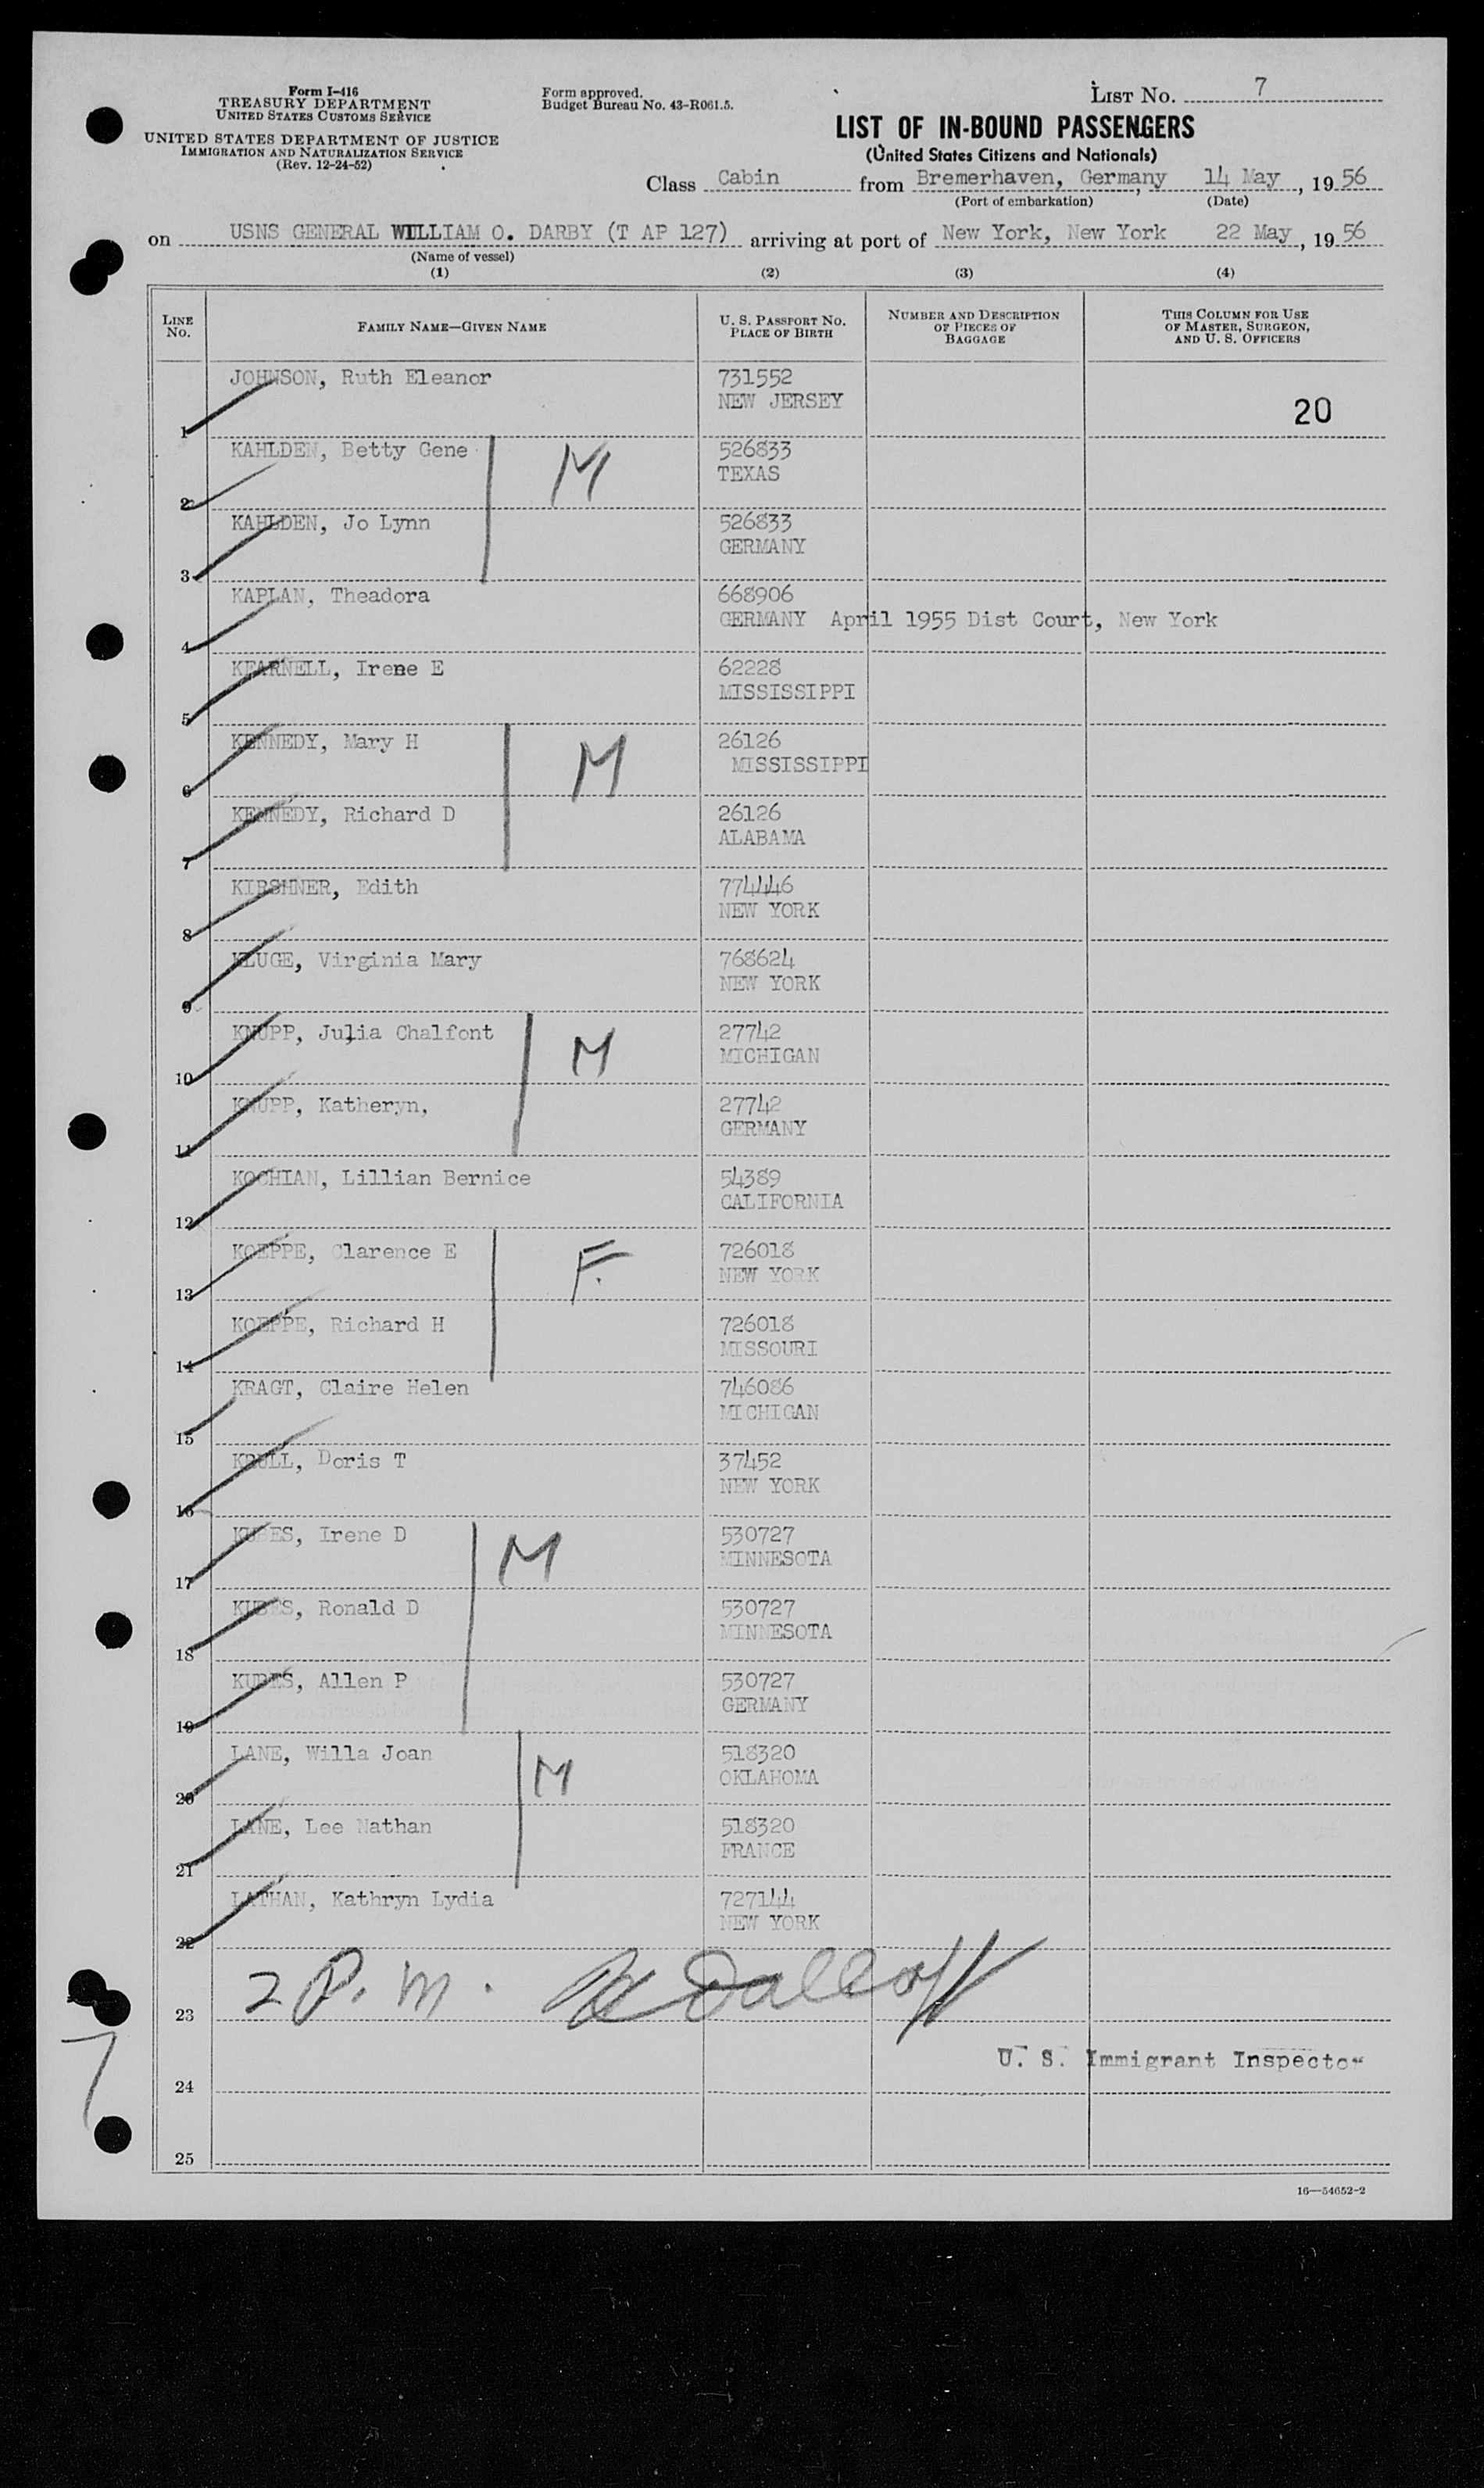 Form I-416
TREASURY DEPARTMENT
UNITED STATES CUSTOMS SERVICE
UNITED STATES DEPARTMENT OF JUSTICE
IMMIGRATION AND NATURALIZATION SERVICE
(Rev. 12-24-52)
Form approved.
Budget Bureau No. 43-R061.5.
LIST NO. 7
LIST OF IN-BOUND PASSENGERS
(United States Citizens and Nationals)
Class Cabin from Bremerhaven, Germany, 14 May, 1956
(Port of embarkation) (Date)
on USNS GENERAL WILLIAM O. DARBY (T AP 127) arriving at port of New York, New York 22 May, 1956
(Name of vessel)
(1) (2) (3) (4)
LINE NO. FAMILY NAME—GIVEN NAME U. S. PASSPORT NO. PLACE OF BIRTH NUMBER AND DESCRIPTION OF PIECES OF BAGGAGE THIS COLUMN FOR USE OF MASTER, SURGEON, AND U. S. OFFICERS
JOHNSON, Ruth Eleanor 731552
1 NEW JERSEY 20
KAHLDEN, Betty Gene M 526833
2 TEXAS
KAHLDEN, Jo Lynn 526833
3 GERMANY
KAPLAN, Theadora 668906
4 GERMANY April 1955 Dist Court, New York
KEARNELL, Irene E 62228
5 MISSISSIPPI
KENNEDY, Mary H M 26126
6 MISSISSIPPI
KENNEDY, Richard D 26126
7 ALABAMA
KIRSHNER, Edith 774446
8 NEW YORK
KLUGE, Virginia Mary 768624
9 NEW YORK
KNUPP, Julia Chalfont M 27742
10 MICHIGAN
KNUPP, Katheryn, 27742
11 GERMANY
KOCHIAN, Lillian Bernice 54389
12 CALIFORNIA
KOEPPE, Clarence E F. 726018
13 NEW YORK
KOEPPE, Richard H 726018
14 MISSOURI
KRAGT, Claire Helen 746086
15 MICHIGAN
KRULL, Doris T 37452
16 NEW YORK
KUBES, Irene D M 530727
17 MINNESOTA
KUBES, Ronald D 530727
18 MINNESOTA
KUBES, Allen P 530727
19 GERMANY
LANE, Willa Joan M 518320
20 OKLAHOMA
LANE, Lee Nathan 518320
21 FRANCE
LATHAN, Kathryn Lydia 727144
22 NEW YORK
23 2 P.m.
U. S. Immigrant Inspector
7
24
25
16—54652-2